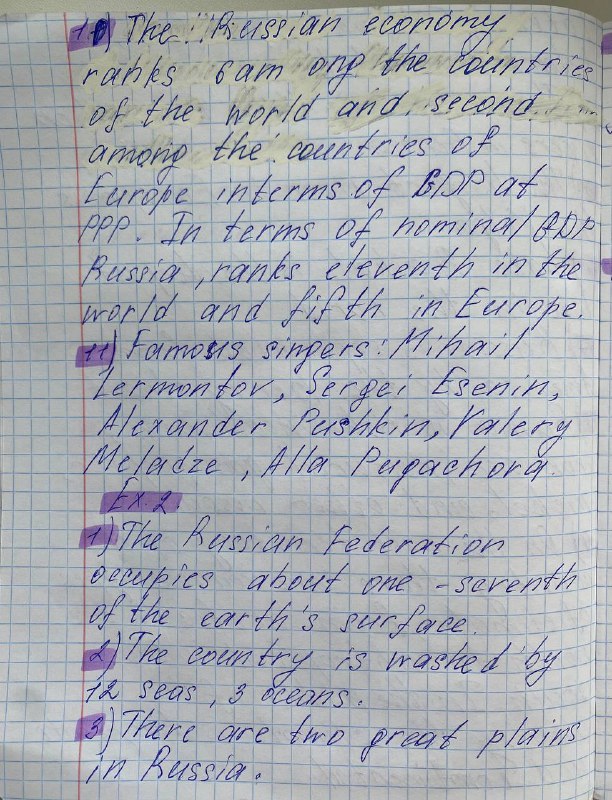 10) The Russian economy
ranks 6 am ong the countries
of the world and second
among the countries of
Europe interms of GDP at
PPP. In terms of nominal GDP
Russia, ranks eleventh in the
world and fifth in Europe.
11) Famous singers: Mihail
Lermontov, Sergei Esenin,
Alexander Pushkin, Valery
Meladze, Alla Pugachova.
Ex. 2.
1) The Russian Federation
occupies about one - seventh
of the earth's surface.
2) The country is washed by
12 seas, 3 oceans.
3) There are two great plains
in Russia.